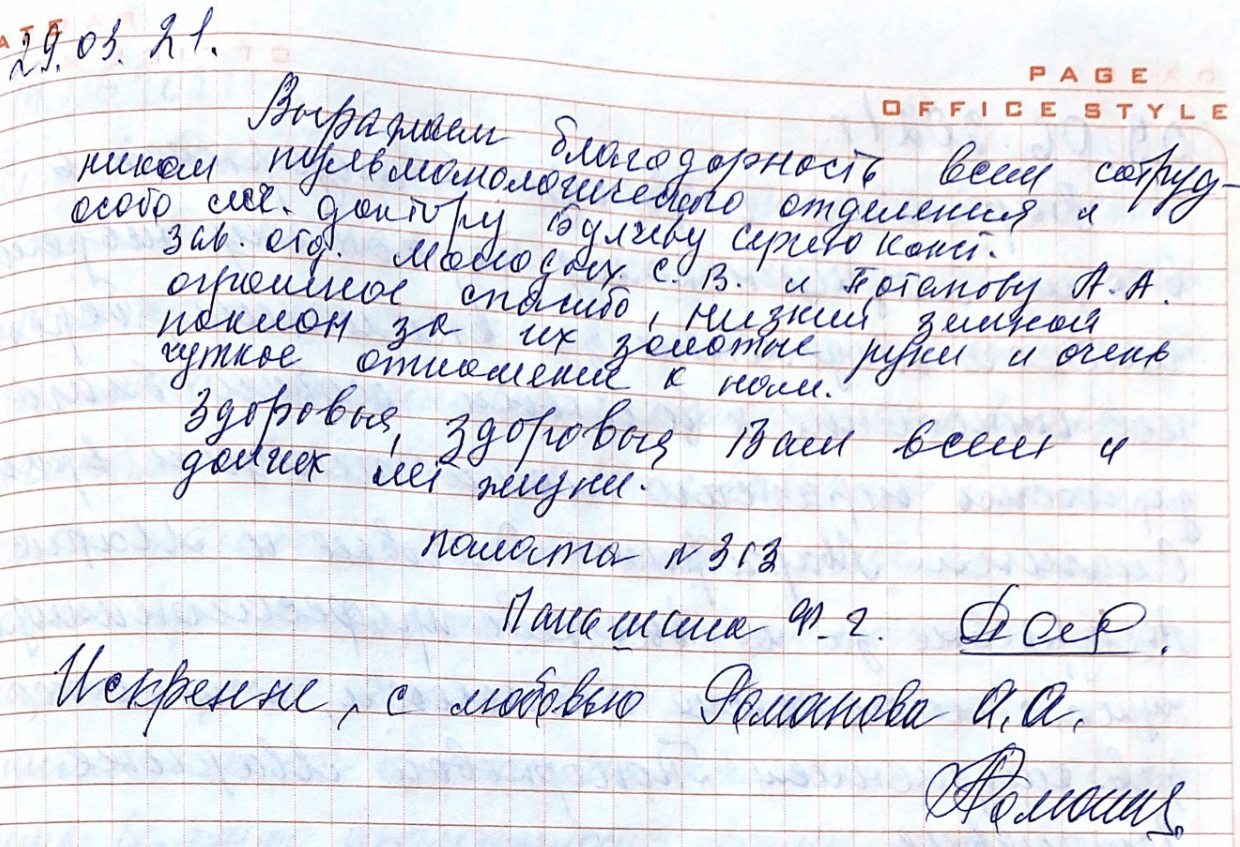 29.03.21.
PAGE
OFFICE STYLE
Выражаем благодарность всем сотруд-
никам пульмонологического отделения и
особо леч. доктору Сергею Конст.
зав. отд. Молодых С. В. и Потапову А.А.
огромное спасибо, низкий земной
поклон за их золотые руки и очень
чуткое отношение к нам.
Здоровья, здоровья Вам всем и
долгих лет жизни.
палата № 313
Ф. Г.
Искренне, с любовью Романова А.А.